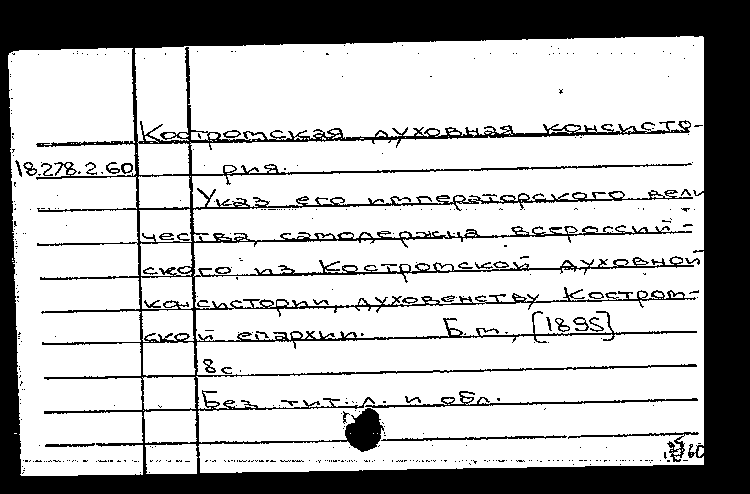 Костромская духовная консисто-
18.278.2.60 рия.
Указ его императорского вели
чества, самодержца всероссий-
ского, из Костромской духовной
консистории, духовенству Костром-
ской епархии. Б.м., [1895]
8с.
Без тит. л. и обл.
60